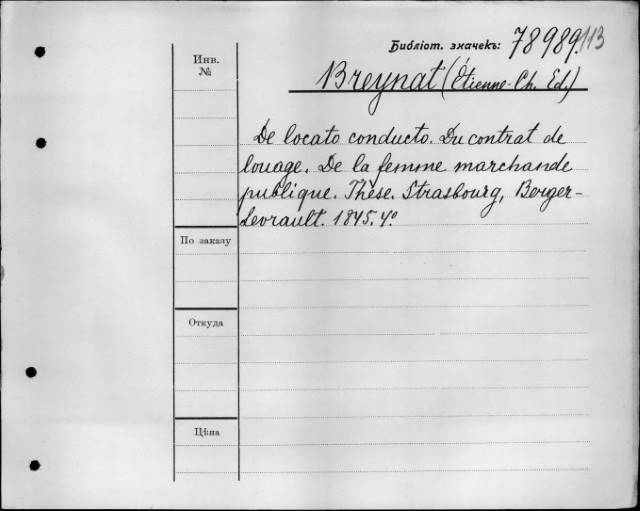 Библіот. значекъ: 78989.113
Инв.
№
Breynat (Étienne-Ch. Ed.)
De locato conducto. Du contrat de
louage. De la femme marchande
publique. Thèse. Strasbourg, Berger-
Levrault. 1845. 4º
По заказу
Откуда
Цѣна